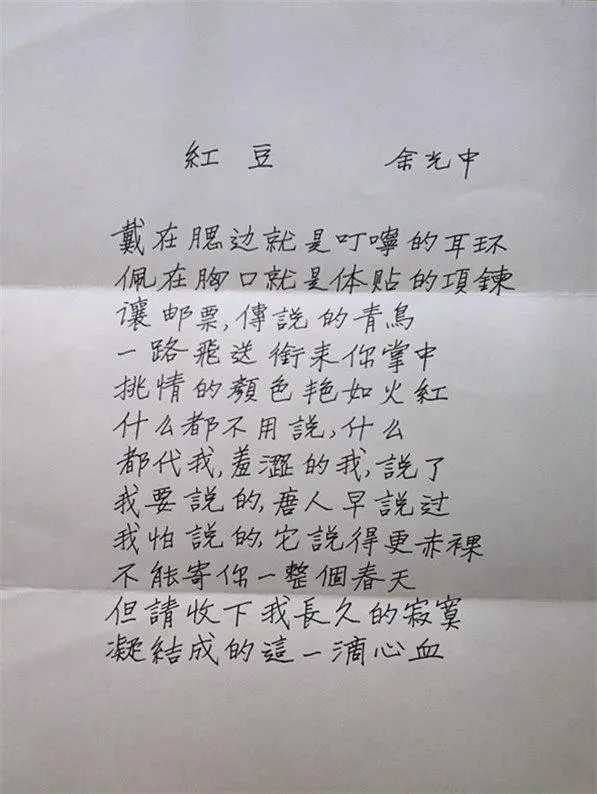 紅豆 余光中
戴在腮边就是叮嚀的耳环
佩在胸口就是体贴的項鍊
讓邮票,傳説的青鳥
一路飛送銜来你掌中
挑情的顏色艳如火紅
什么都不用説,什么
都代我,羞澀的我,説了
我要説的,唐人早説过
我怕説的,它説得更赤裸
不能寄你一整個春天
但請收下我長久的寂寞
凝結成的這一滴心血